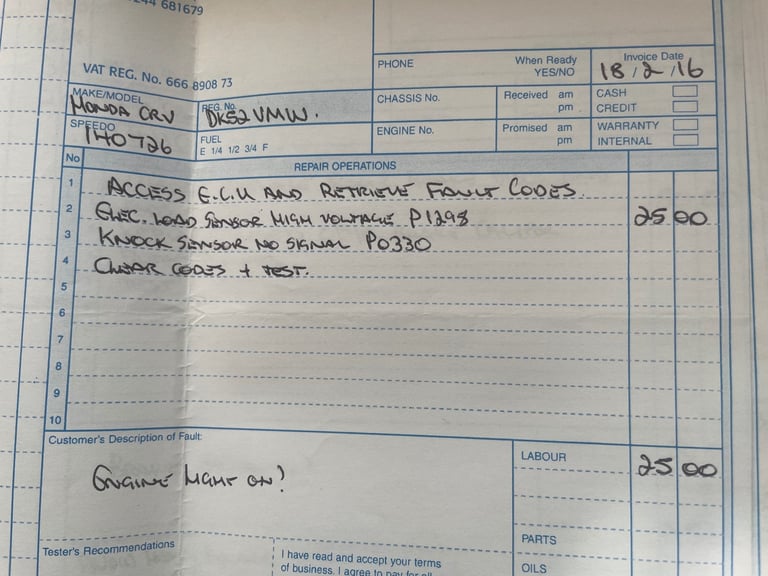 44 681679
VAT REG. No. 666 8908 73
PHONE
When Ready
YES/NO
Invoice Date
18/2/16
MAKE/MODEL
HONDA CRV
REG. No.
DK52 VMW.
CHASSIS No.
Received am
pm
CASH
CREDIT
SPEEDO
140726
FUEL
E 1/4 1/2 3/4 F
ENGINE No.
Promised am
pm
WARRANTY
INTERNAL
No
REPAIR OPERATIONS
1 ACCESS E.C.U AND RETRIEVE FAULT CODES
2 ELEC. LOAD SENSOR HIGH VOLTAGE P1298 25 00
3 KNOCK SENSOR NO SIGNAL P0330
4 CLEAR CODES + TEST.
5
6
7
8
9
10
Customer's Description of Fault:
ENGINE MGMT ON?
LABOUR 25 00
PARTS
OILS
Tester's Recommendations
I have read and accept your terms
of business. I agree to pay for all